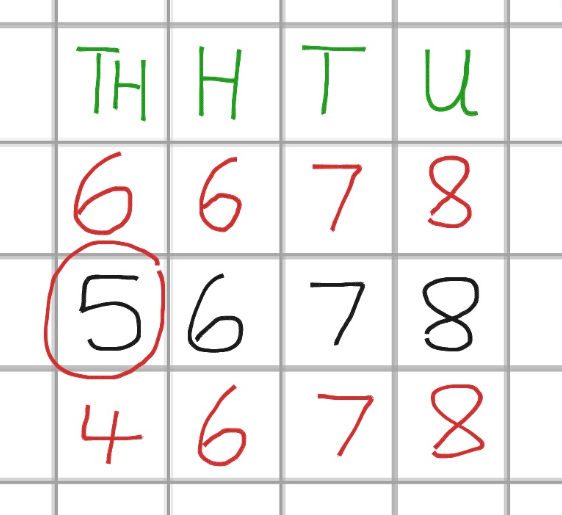 TH H T U
6 6 7 8
5 6 7 8
4 6 7 8